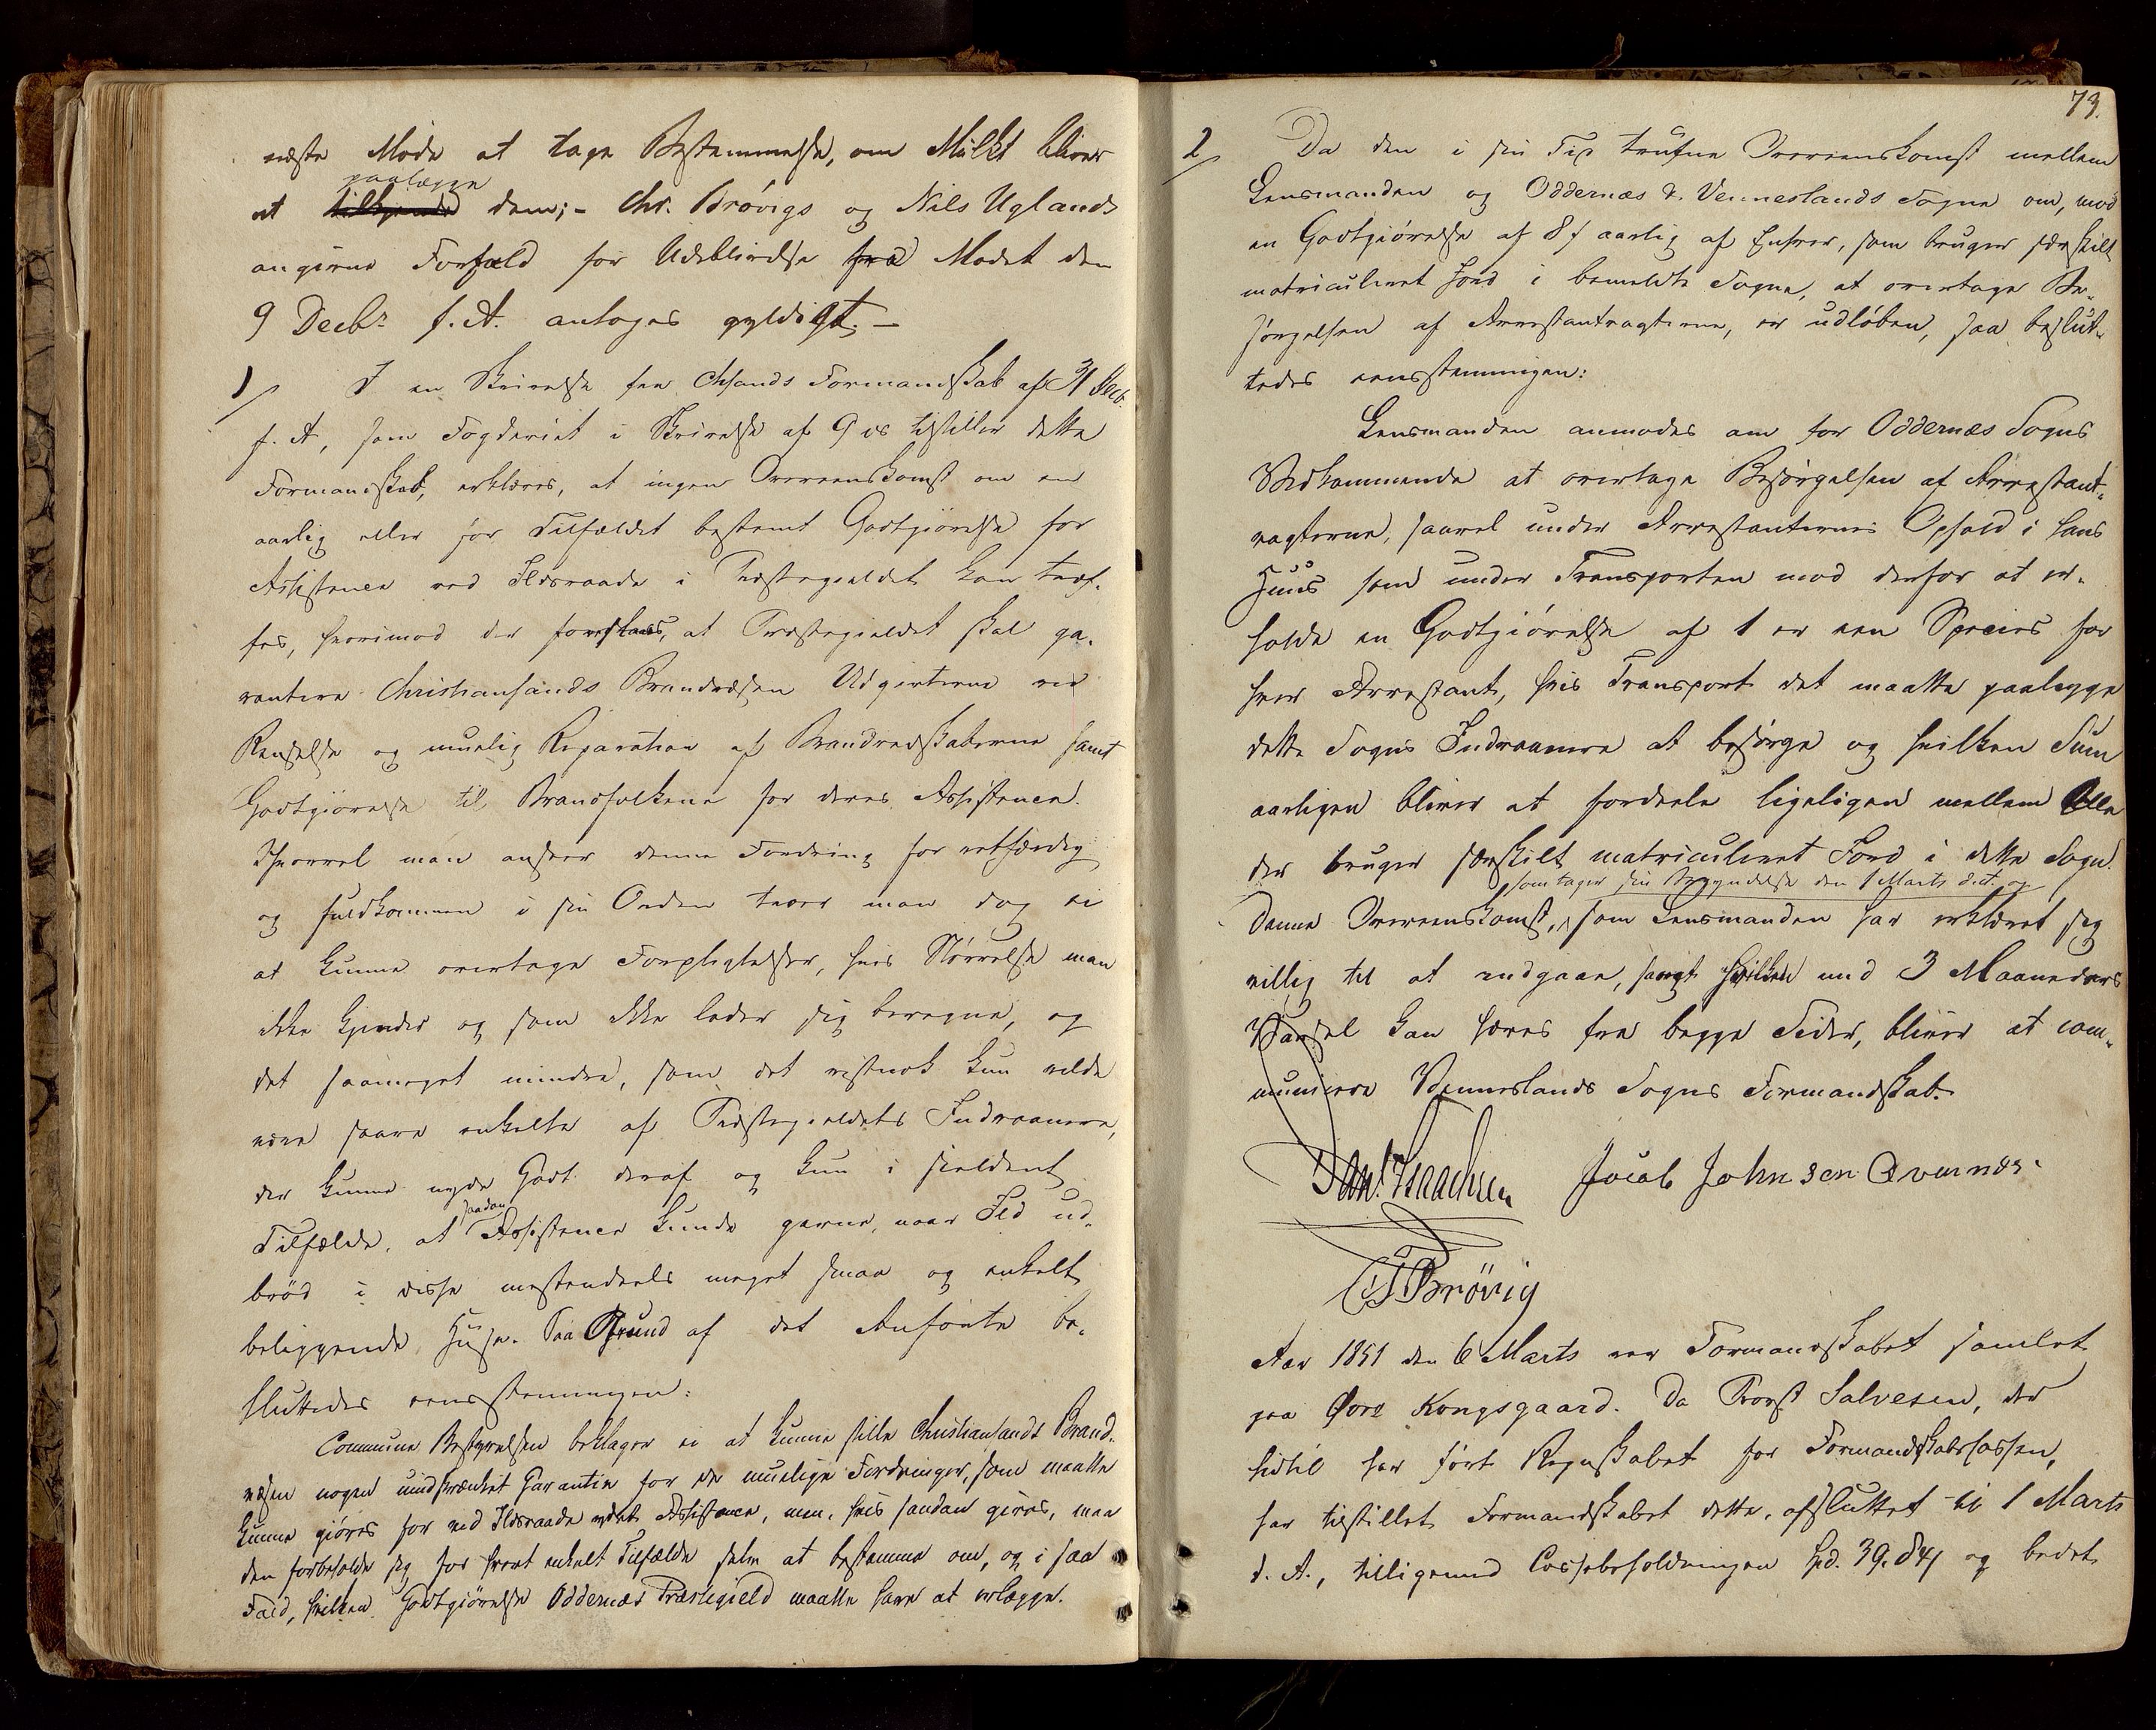 næste Møde at tage Bestemmelse, om Mulkt bliver
paalægge
at tilkjende dem; - Chr. Brøvigs og Nils Uglands
angivne Forfald for Udeblivelse fra Mødet den
9 Decbr f. A. antoges gyldigt. -
1/ I en Skrivelse fra Chsands Formandskab af 31 Decb.
f. A, som Fogderiet i Skrivelse af 9 ds tilstiller dette
Formandskab, erklæres, at ingen Overeenskomst om en
aarlig eller for Tilfældet bestemt Godtgiørelse for
Assistence ved Ildsvaade i Præstegieldet kan træf-
fes, hvorimod der foreslaaes, at Præstegieldet skal ga-
rantere Christiansands Brandvæsen Udgivterne ved
Renselse og muelig Reparation af Brandredskaberne samt
Godtgiørelse til Brandfolkene for deres Assistence.
Ihvorvel man anseer denne Fordring for retfærdig
og fuldkommen i sin Orden troer man dog ei
at kunne overtage Forpligtelser, hvis Størrelse man
ikke kjender og som ikke lader sig beregne, og
det saameget mindre, som det vistnok kun vilde
være saare enkelte af Præstegieldets Indvaanere,
der kunne nyde Godt deraf og kun i sieldent
saadan
Tilfælde, at Assistence kunde gavne, naar Ild ud-
brød i disse mestendeels meget smaa og enkelt
beliggende Huse. Paa Grund af det Anførte be-
sluttedes eensstemmigen:
Commune Bestyrelsen beklager ei at kunne stille Christiansands Brand-
væsen nogen uindskrænket Garantie for de muelige Fordringer, som maatte
kunne giøres for ved Ildsvaade ydet Assistence, men, hvis saadan gives, maa
den forbeholde sig for hvert enkelt Tilfælde selv at bestemme om, og i saa
Fald, hvilken Godtgiørelse Oddernæs Præstegield maatte have at erlægge.
73.
2/ Da den i sin Tid trufne Overeenskomst mellem
Lensmanden og Oddernæs & Venneslands Sogne om, mod
en Godtgiørelse af 8 s aarlig af Enhver, som bruger særskilt
matriculeret Jord i bemeldte Sogne, at overtage Be-
sørgelsen af Arrestantvagterne, er udløben, saa beslut-
tedes eensstemmigen:
Lensmanden anmodes om for Oddernæs Sogns
Vedkommende at overtage Besørgelsen af Arrestant-
vagterne, saavel under Arrestanternes Ophold i hans
Huus som under Transporten mod derfor at er-
holde en Godtgiørelse af 1 er een Species for
hver Arrestant, hvis Transport det maatte paaligge
dette Sogns Indvaanere at besørge og hvilken Sum
aarligen bliver at fordeele ligeligen mellem Alle
der bruger særskilt matriculeret Jord i dette Sogn.
som tager sin Begyndelse den 1 Marts d. A. og
Denne Overeenskomst, som Lensmanden har erklæret sig
villig til at indgaae, samt hvilken med 3 Maaneders
Varsel kan hæves fra begge Sider, bliver at com-
municere Venneslands Sogns Formandskab.
Danl. Isaachsen Jacob Johnsen Qvernæs
C Brøvig
Aar 1851 den 6 Marts var Formandskabet samlet
paa Øvre Kongsgaard. Da Provst Salvesen, der
hidtil har ført Regnskabet for Formandskabscassen,
har tilstillet Formandskabet dette, afsluttet til 1 Marts
d. A., tilligemed Cassebeholdningen Spd. 39. 84 s og bedet